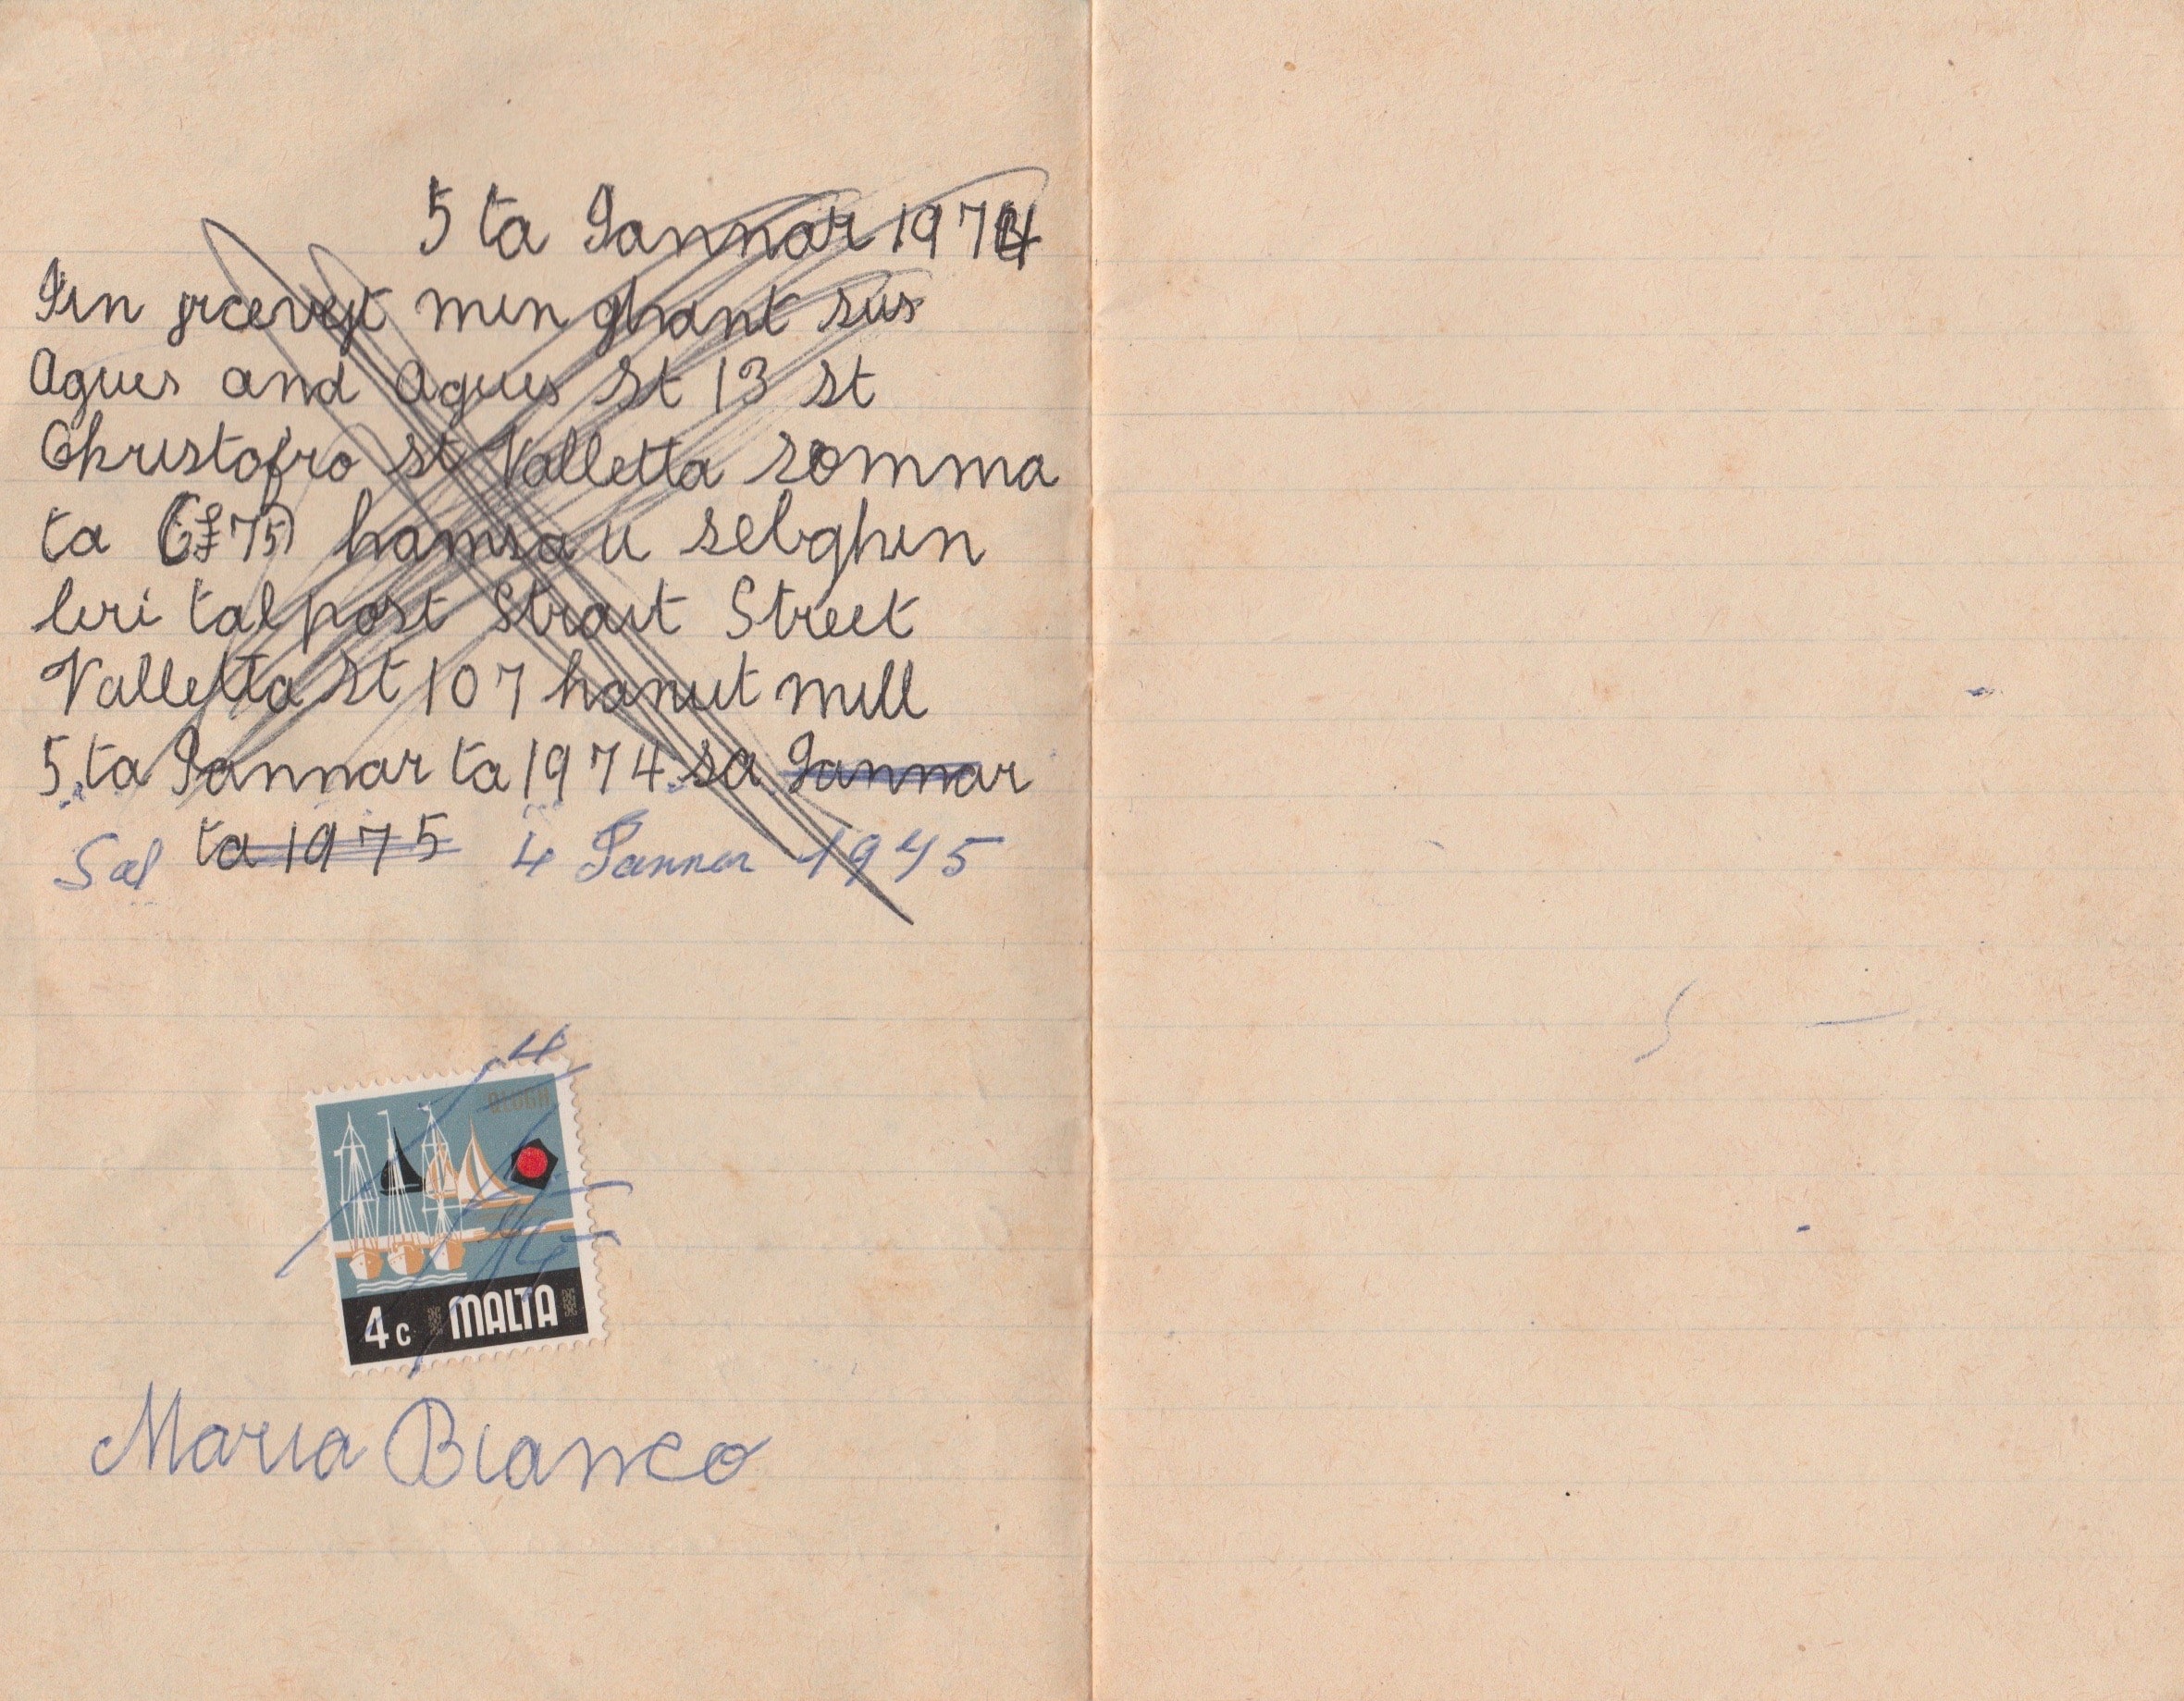 5 ta Jannar 1974
Jin ircevejt min ghant sus
Agius and Agius St 13 st
Christofro st Valletta somma
ta (£75) hamsa u sebghin
liri tal post Strait Street
Valletta St 107 hanut mill
5 ta Jannar ta 1974 sa Jannar
Sal ta 1975 4 Jannar 1975
4
5
4c MALTA
Maria Bianco